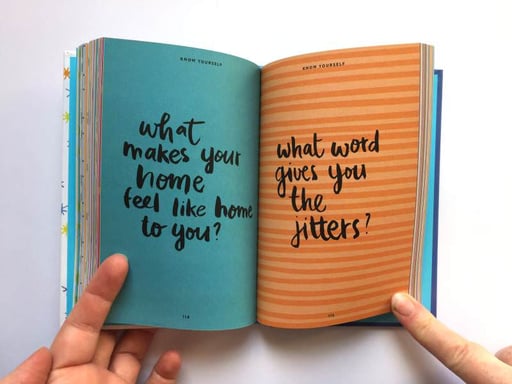 KNOW YOURSELF
what
makes your
home
feel like home
to you?
114
KNOW YOURSELF
what word
gives you
the
jitters?
115